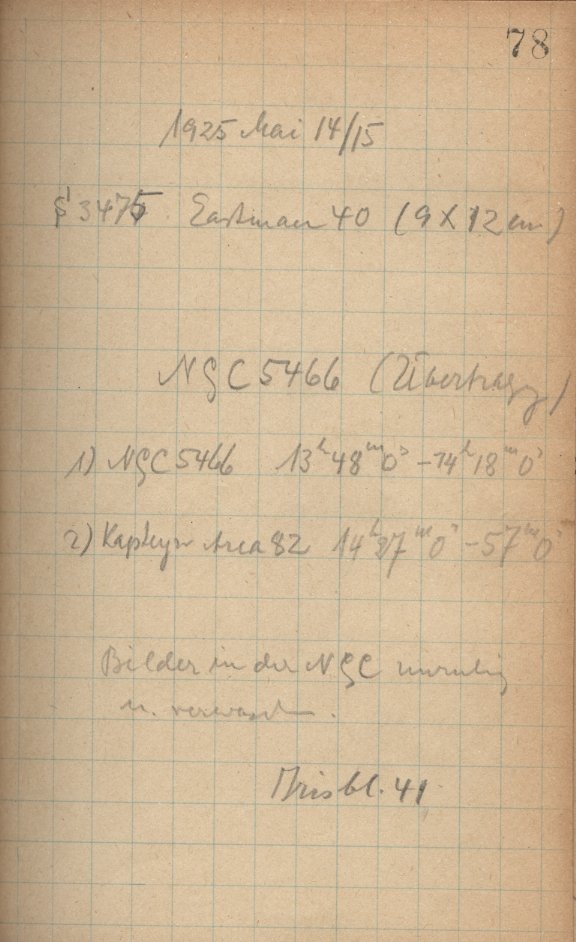 78
1925 Mai 14/15
S 3475 Eastman 40 (9 X 12 cm)
NGC 5466 (Übertragg)
1) NGC 5466 13ʰ48ᵐ0ˢ – 14ʰ18ᵐ0ˢ
2) Kapteyn Area 82 14ʰ37ᵐ0ˢ – 57ᵐ0ˢ
Bilder in der NGC unruhig
u. verwaschen.
Irisbl. 41